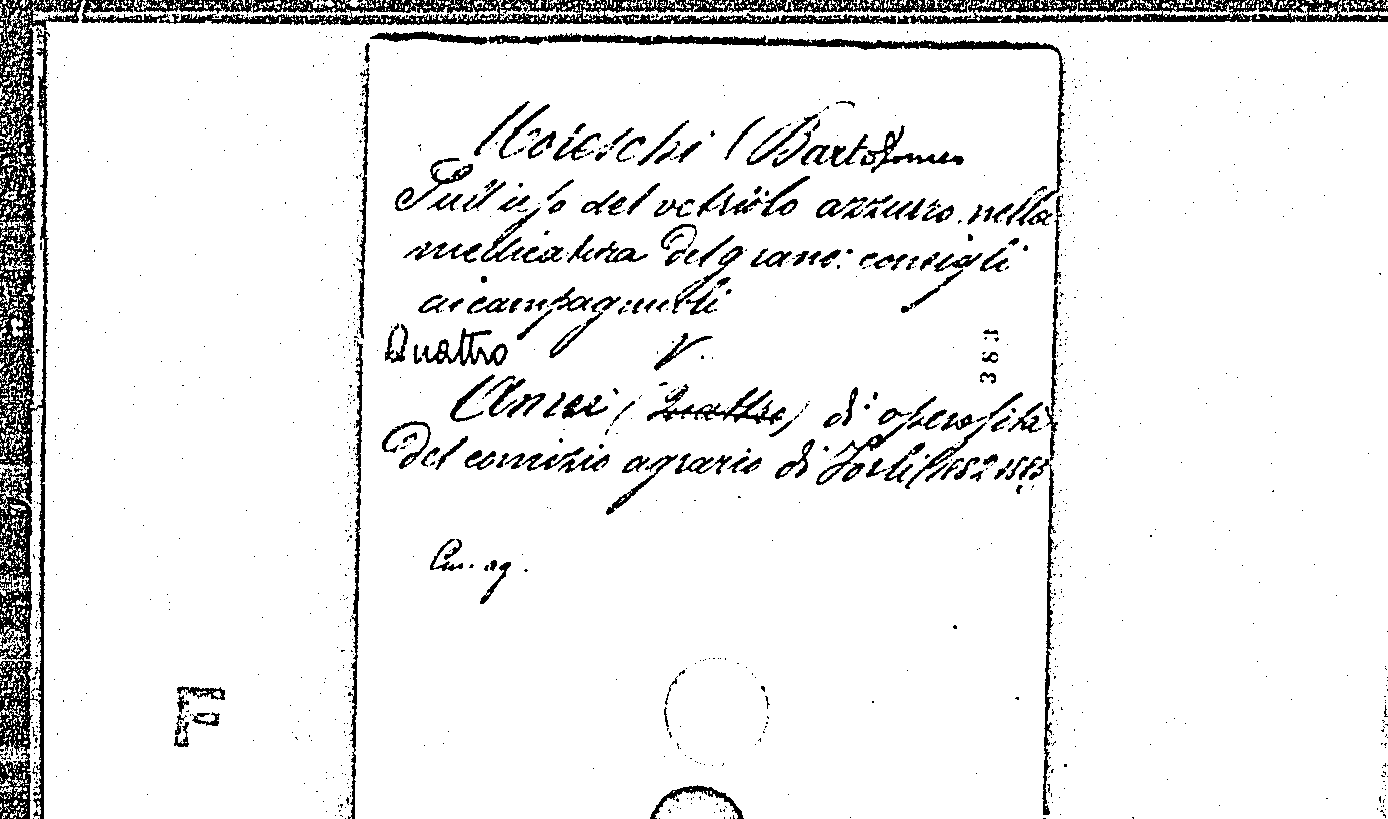 Moreschi (Bartolomeo
Sull'uso del vetriolo azzurro nella
medicatura del grano: consigli
ai campagnuoli
Quattro V.
383
Anni (Quattro) di operosità
del comizio agrario di Forlì (1882-1885
ag.
F